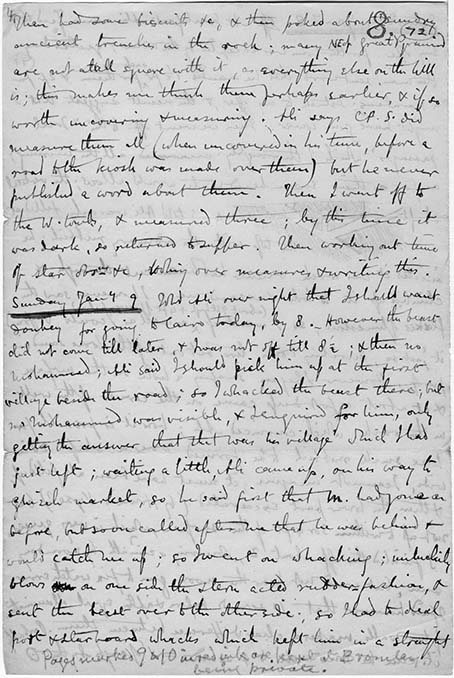 8.
721.
Then had some biscuits &c, & then poked about sundry
ancient trenches in the rock; many NE of great pyramid
are not at all square with it, as everything else on the hill
is; this makes me think them perhaps earlier, & if so
worth uncovering & measuring. Ali says C.P.S. did
measure them all (when uncovered in his time, before a
road to the kiosk was made over them) but he never
published a word about them. Then I went off to
the W. tombs, & measured three; by this time it
was dark, so returned to supper. Then working out time
of star obsns &c, looking over measures & writing this.
Sunday Jany 9 Told Ali over night that I should want
donkey for going to Cairo today, by 8. However the beast
did not come till later, & I was not off till 8½; & then no
Mohammed; Ali said I should pick him up at the first
village beside the road; so I whacked the beast there; but
no Mohammed was visible, & I enquired for him, only
getting the answer that that was his village which I had
just left; waiting a little, Ali came up, on his way to
Ghizeh market, so he said first that M. had gone on
before, but soon called after me that he was behind &
would catch me up; so I went on whacking; unluckily
blows on one side the stern acted rudder-fashion, &
sent the beast over to the other side. so I had to deal
port & starboard whacks which kept him in a straight
Pages marked 9 & 10 in red ink are kept at Bromley,
being private.